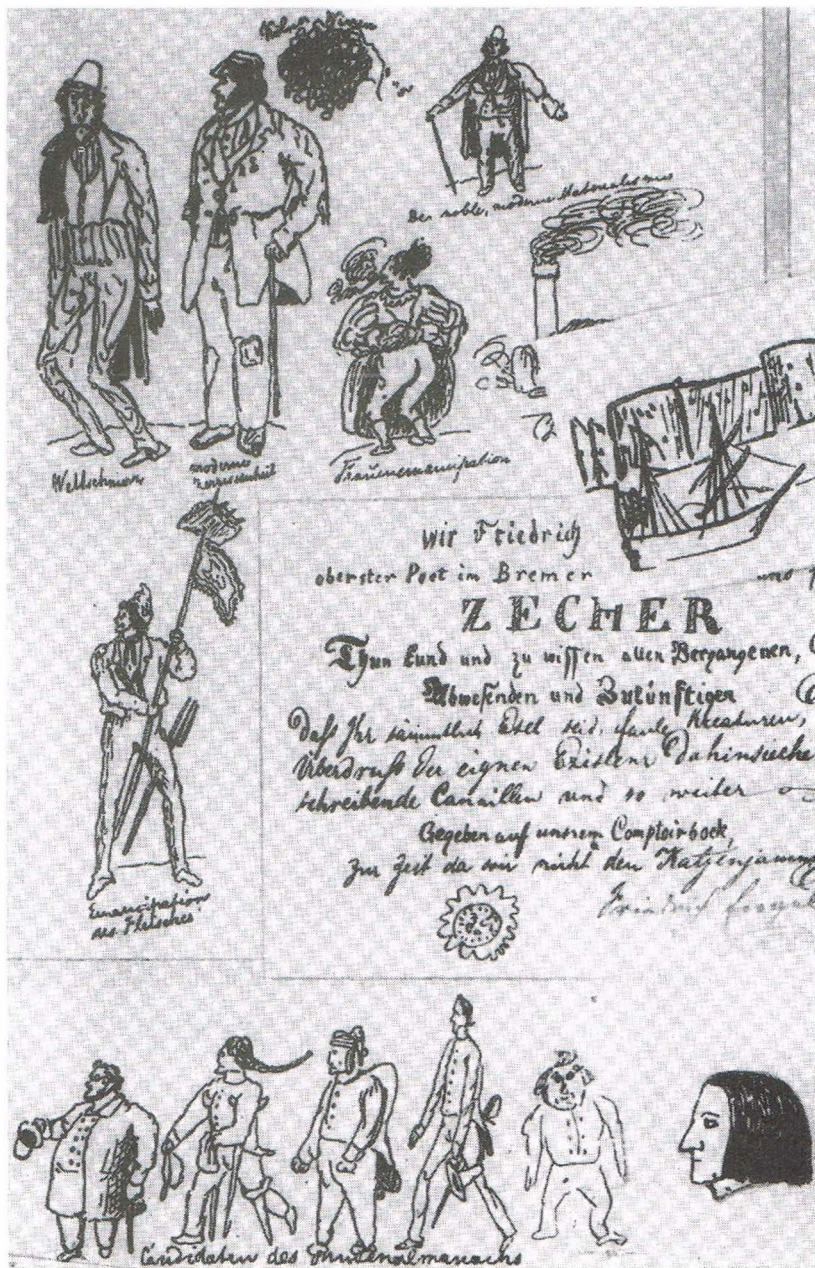 Der noble, moderne Materialismus
Weltschmerz
moderne
Zerrissenheit
Frauenemancipation
Wir Friedrich
oberster Poet im Bremer
und
ZECHER
Thun kund und zu wissen allen Vergangenen,
Abwesenden und Zukünftigen
Daß Ihr sämmtlich Esel seid, faule Kreaturen,
Überdruß der eignen Existenz dahinsieche
schreibende Canaillen und so weiter
Gegeben auf unsrem Comptoirbock,
zur Zeit da wir nicht den Katzenjamm
Friedrich Engel
Emancipation
des Fleisches
Candidaten des